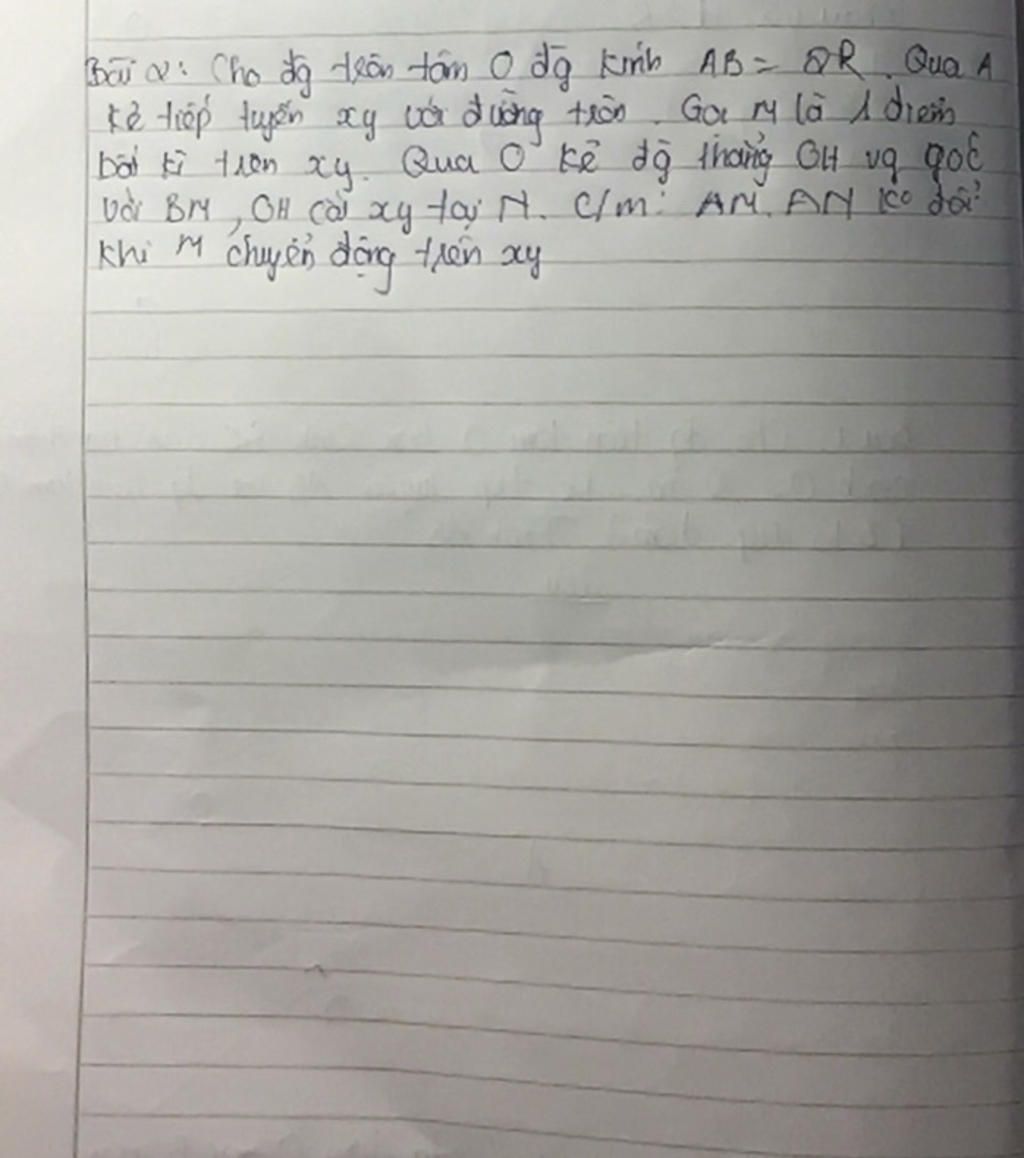 Bài 2: Cho đg tròn tâm O đg kính AB = 2R. Qua A
kẻ tiếp tuyến xy với đường tròn. Gọi M là 1 điểm
bất kì trên xy. Qua O kẻ đg thẳng OH vg góc
với BM, OH cắt xy tại N. C/m: AM. AN ko đổi
khi M chuyển động trên xy